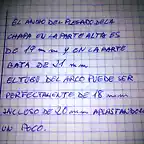 EL ANCHO DEL PLEGADO DE LA
CHAPA EN LA PARTE ALTA ES
DE 19 mm Y EN LA PARTE
BAJA DE 21 mm
EL TUBO DEL ARCO PUEDE SER
PERFECTAMENTE DE 18 mm
INCLUSO DE 20 mm APLASTANDOLO
UN POCO.